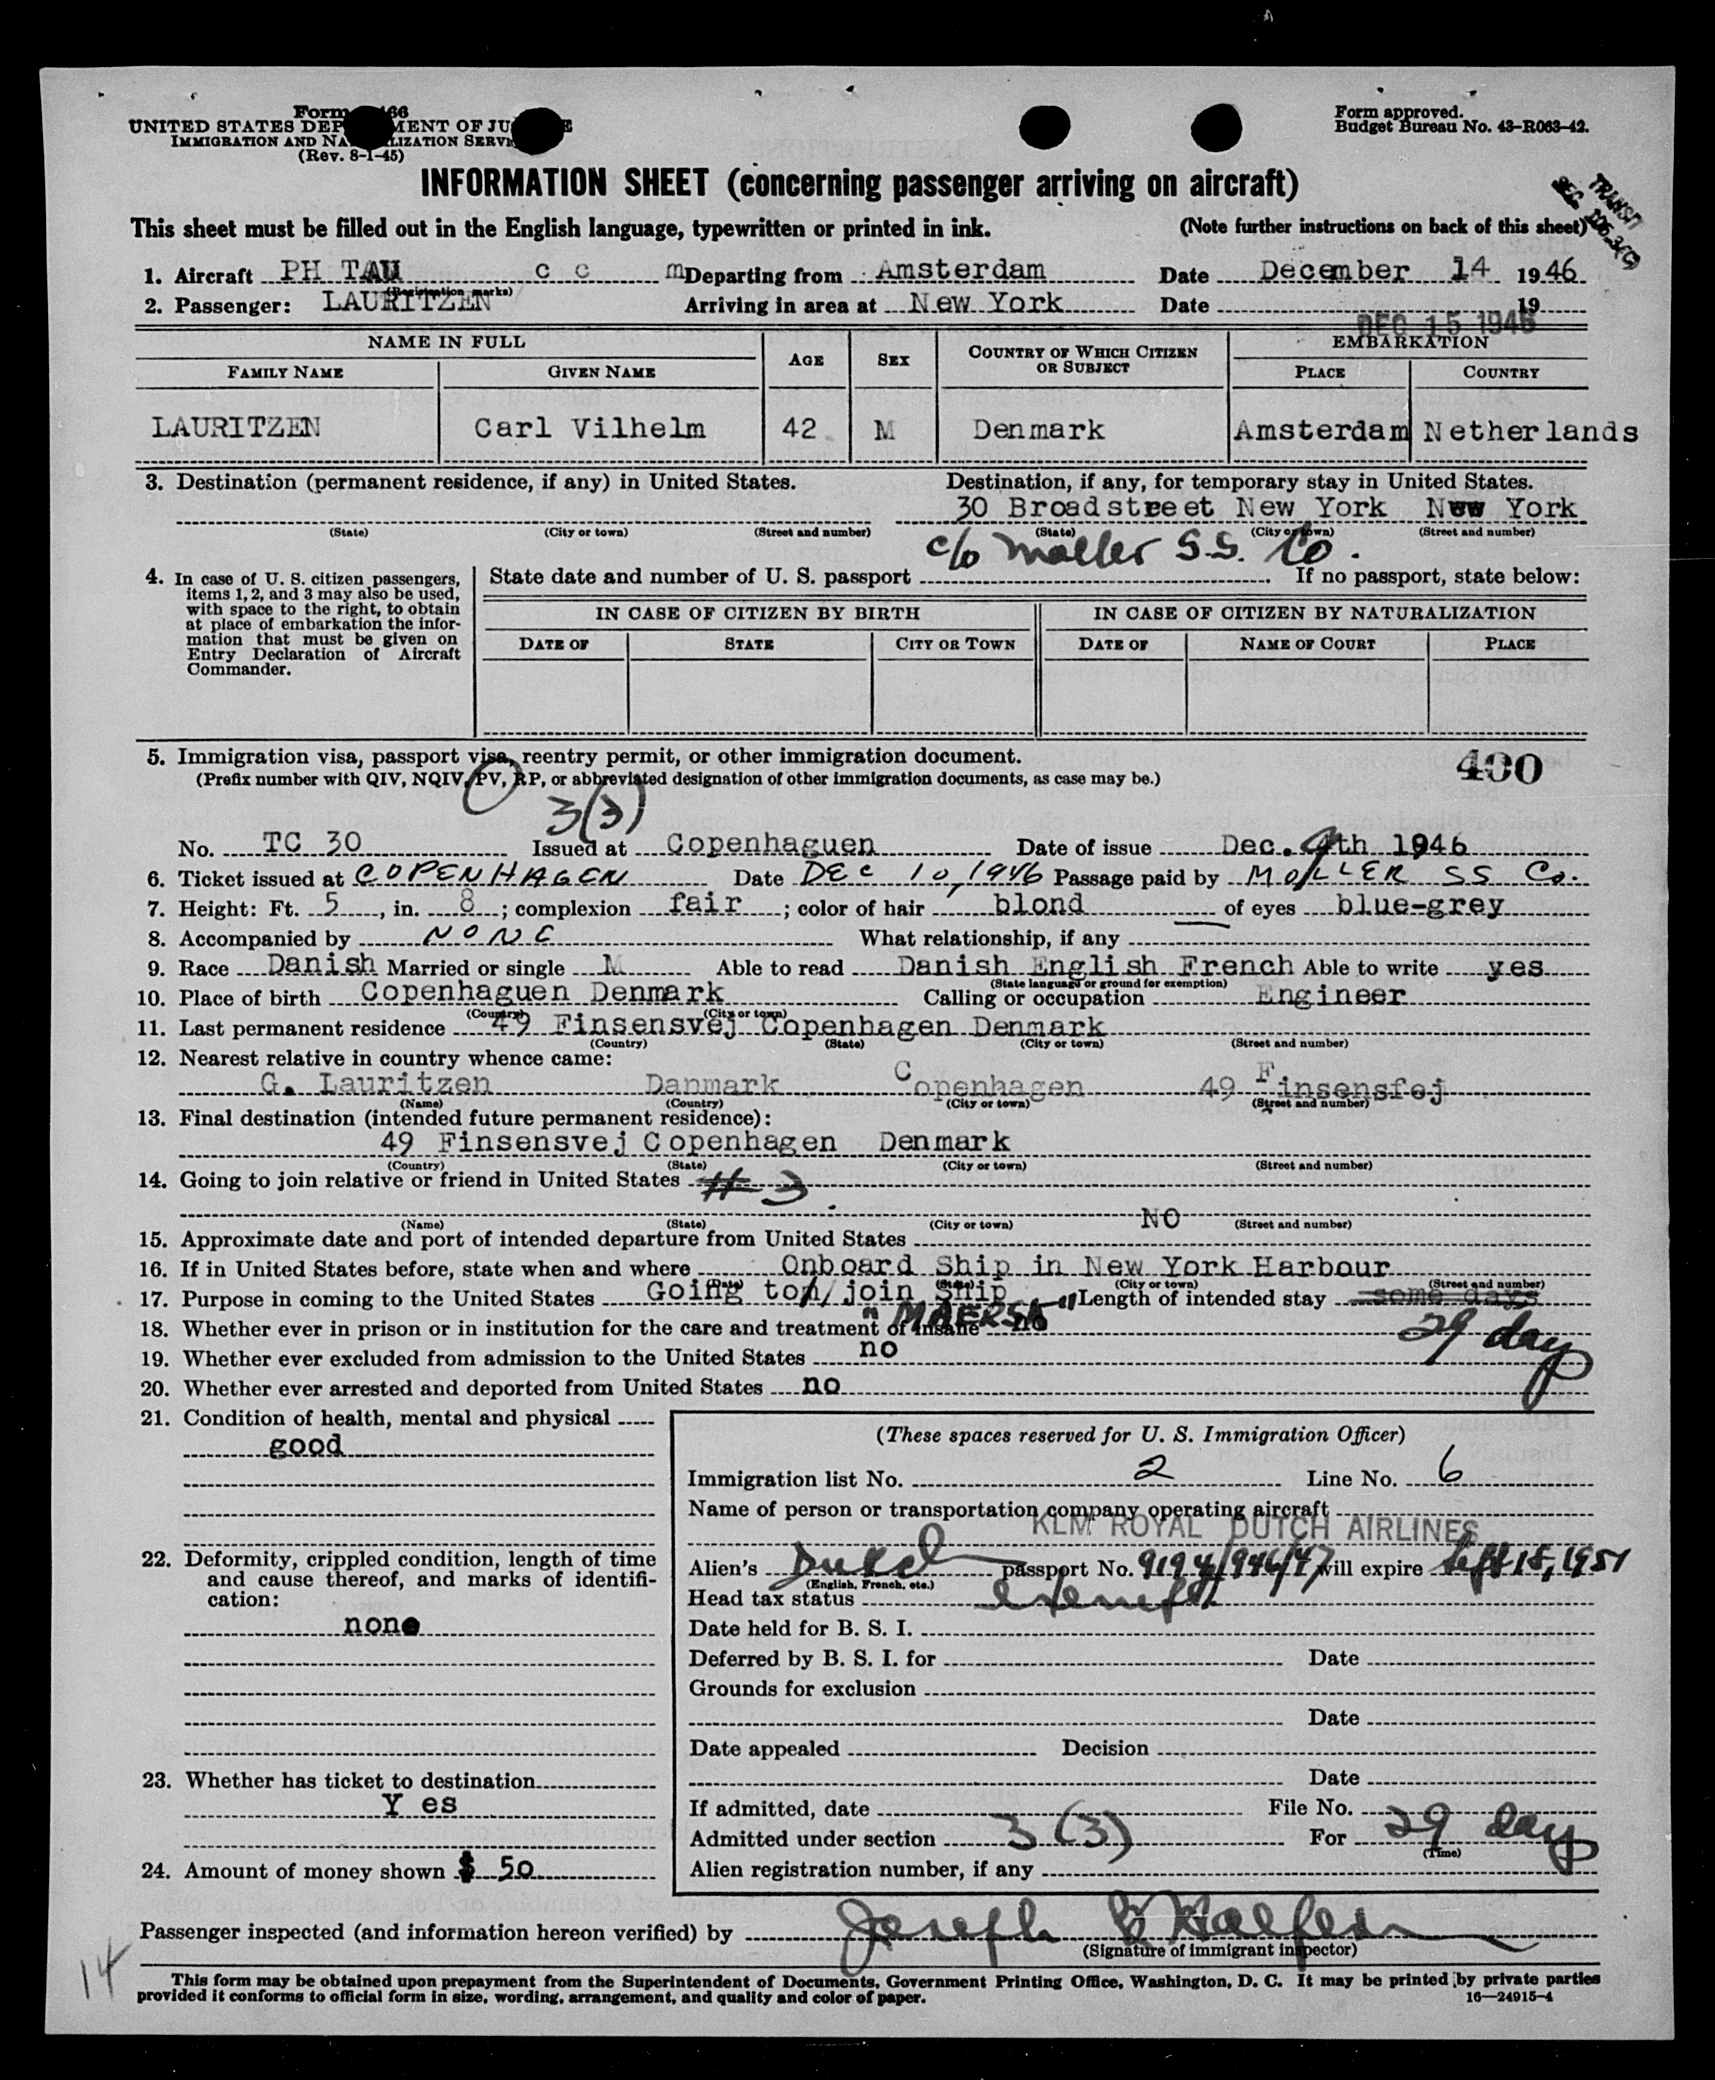 Form 66
UNITED STATES DEP MENT OF JU E
IMMIGRATION AND NA LIZATION SERV
(Rev. 8-1-45)
Form approved.
Budget Bureau No. 43-R063-42.
INFORMATION SHEET (concerning passenger arriving on aircraft)
TRANSIT
SEC.
This sheet must be filled out in the English language, typewritten or printed in ink. (Note further instructions on back of this sheet)
1. Aircraft PH TAU c c m Departing from Amsterdam Date December 14 1946
(Registration marks)
2. Passenger: LAURITZEN Arriving in area at New York Date 19
DEC 15 1946
NAME IN FULL AGE SEX COUNTRY OF WHICH CITIZEN OR SUBJECT EMBARKATION
FAMILY NAME GIVEN NAME PLACE COUNTRY
LAURITZEN Carl Vilhelm 42 M Denmark Amsterdam Netherlands
3. Destination (permanent residence, if any) in United States. Destination, if any, for temporary stay in United States.
30 Broadstreet New York New York
(State) (City or town) (Street and number) (State) (City or town) (Street and number)
c/o Moller S.S. Co.
4. In case of U. S. citizen passengers, items 1, 2, and 3 may also be used, with space to the right, to obtain at place of embarkation the information that must be given on Entry Declaration of Aircraft Commander.
State date and number of U. S. passport If no passport, state below:
IN CASE OF CITIZEN BY BIRTH IN CASE OF CITIZEN BY NATURALIZATION
DATE OF STATE CITY OR TOWN DATE OF NAME OF COURT PLACE
5. Immigration visa, passport visa, reentry permit, or other immigration document. 400
(Prefix number with QIV, NQIV, PV, RP, or abbreviated designation of other immigration documents, as case may be.)
3(3)
No. TC 30 Issued at Copenhaguen Date of issue Dec. 9th 1946
6. Ticket issued at COPENHAGEN Date DEC 10, 1946 Passage paid by MOLLER SS Co.
7. Height: Ft. 5, in. 8; complexion fair; color of hair blond of eyes blue-grey
8. Accompanied by NONE What relationship, if any
9. Race Danish Married or single M Able to read Danish English French Able to write yes
(State language or ground for exemption)
10. Place of birth Copenhaguen Denmark Calling or occupation Engineer
(Country) (City or town)
11. Last permanent residence 49 Finsensvej Copenhagen Denmark
(Country) (State) (City or town) (Street and number)
12. Nearest relative in country whence came:
G. Lauritzen Danmark Copenhagen 49 Finsensfej
(Name) (Country) (City or town) (Street and number)
13. Final destination (intended future permanent residence):
49 Finsensvej Copenhagen Denmark
(Country) (State) (City or town) (Street and number)
14. Going to join relative or friend in United States # 3
NO
(Name) (State) (City or town) (Street and number)
15. Approximate date and port of intended departure from United States
16. If in United States before, state when and where Onboard Ship in New York Harbour
(Date) (State) (City or town) (Street and number)
17. Purpose in coming to the United States Going to join Ship Length of intended stay some days
" MAERSK "
29 days
18. Whether ever in prison or in institution for the care and treatment of insane no
19. Whether ever excluded from admission to the United States no
20. Whether ever arrested and deported from United States no
21. Condition of health, mental and physical
good
22. Deformity, crippled condition, length of time and cause thereof, and marks of identification:
none
23. Whether has ticket to destination
Y es
24. Amount of money shown $ 50
(These spaces reserved for U. S. Immigration Officer)
Immigration list No. 2 Line No. 6
Name of person or transportation company operating aircraft
KLM ROYAL DUTCH AIRLINES
Alien's passport No. 9194/946/47 will expire Sept 15, 1951
(English, French, etc.)
Head tax status exempt
Date held for B. S. I.
Deferred by B. S. I. for Date
Grounds for exclusion
Date
Date appealed Decision
Date
If admitted, date File No.
Admitted under section 3 (3) For 29 days
(Time)
Alien registration number, if any
Passenger inspected (and information hereon verified) by Joseph
(Signature of immigrant inspector)
14
This form may be obtained upon prepayment from the Superintendent of Documents, Government Printing Office, Washington, D. C. It may be printed by private parties
provided it conforms to official form in size, wording, arrangement, and quality and color of paper. 16—24915-4